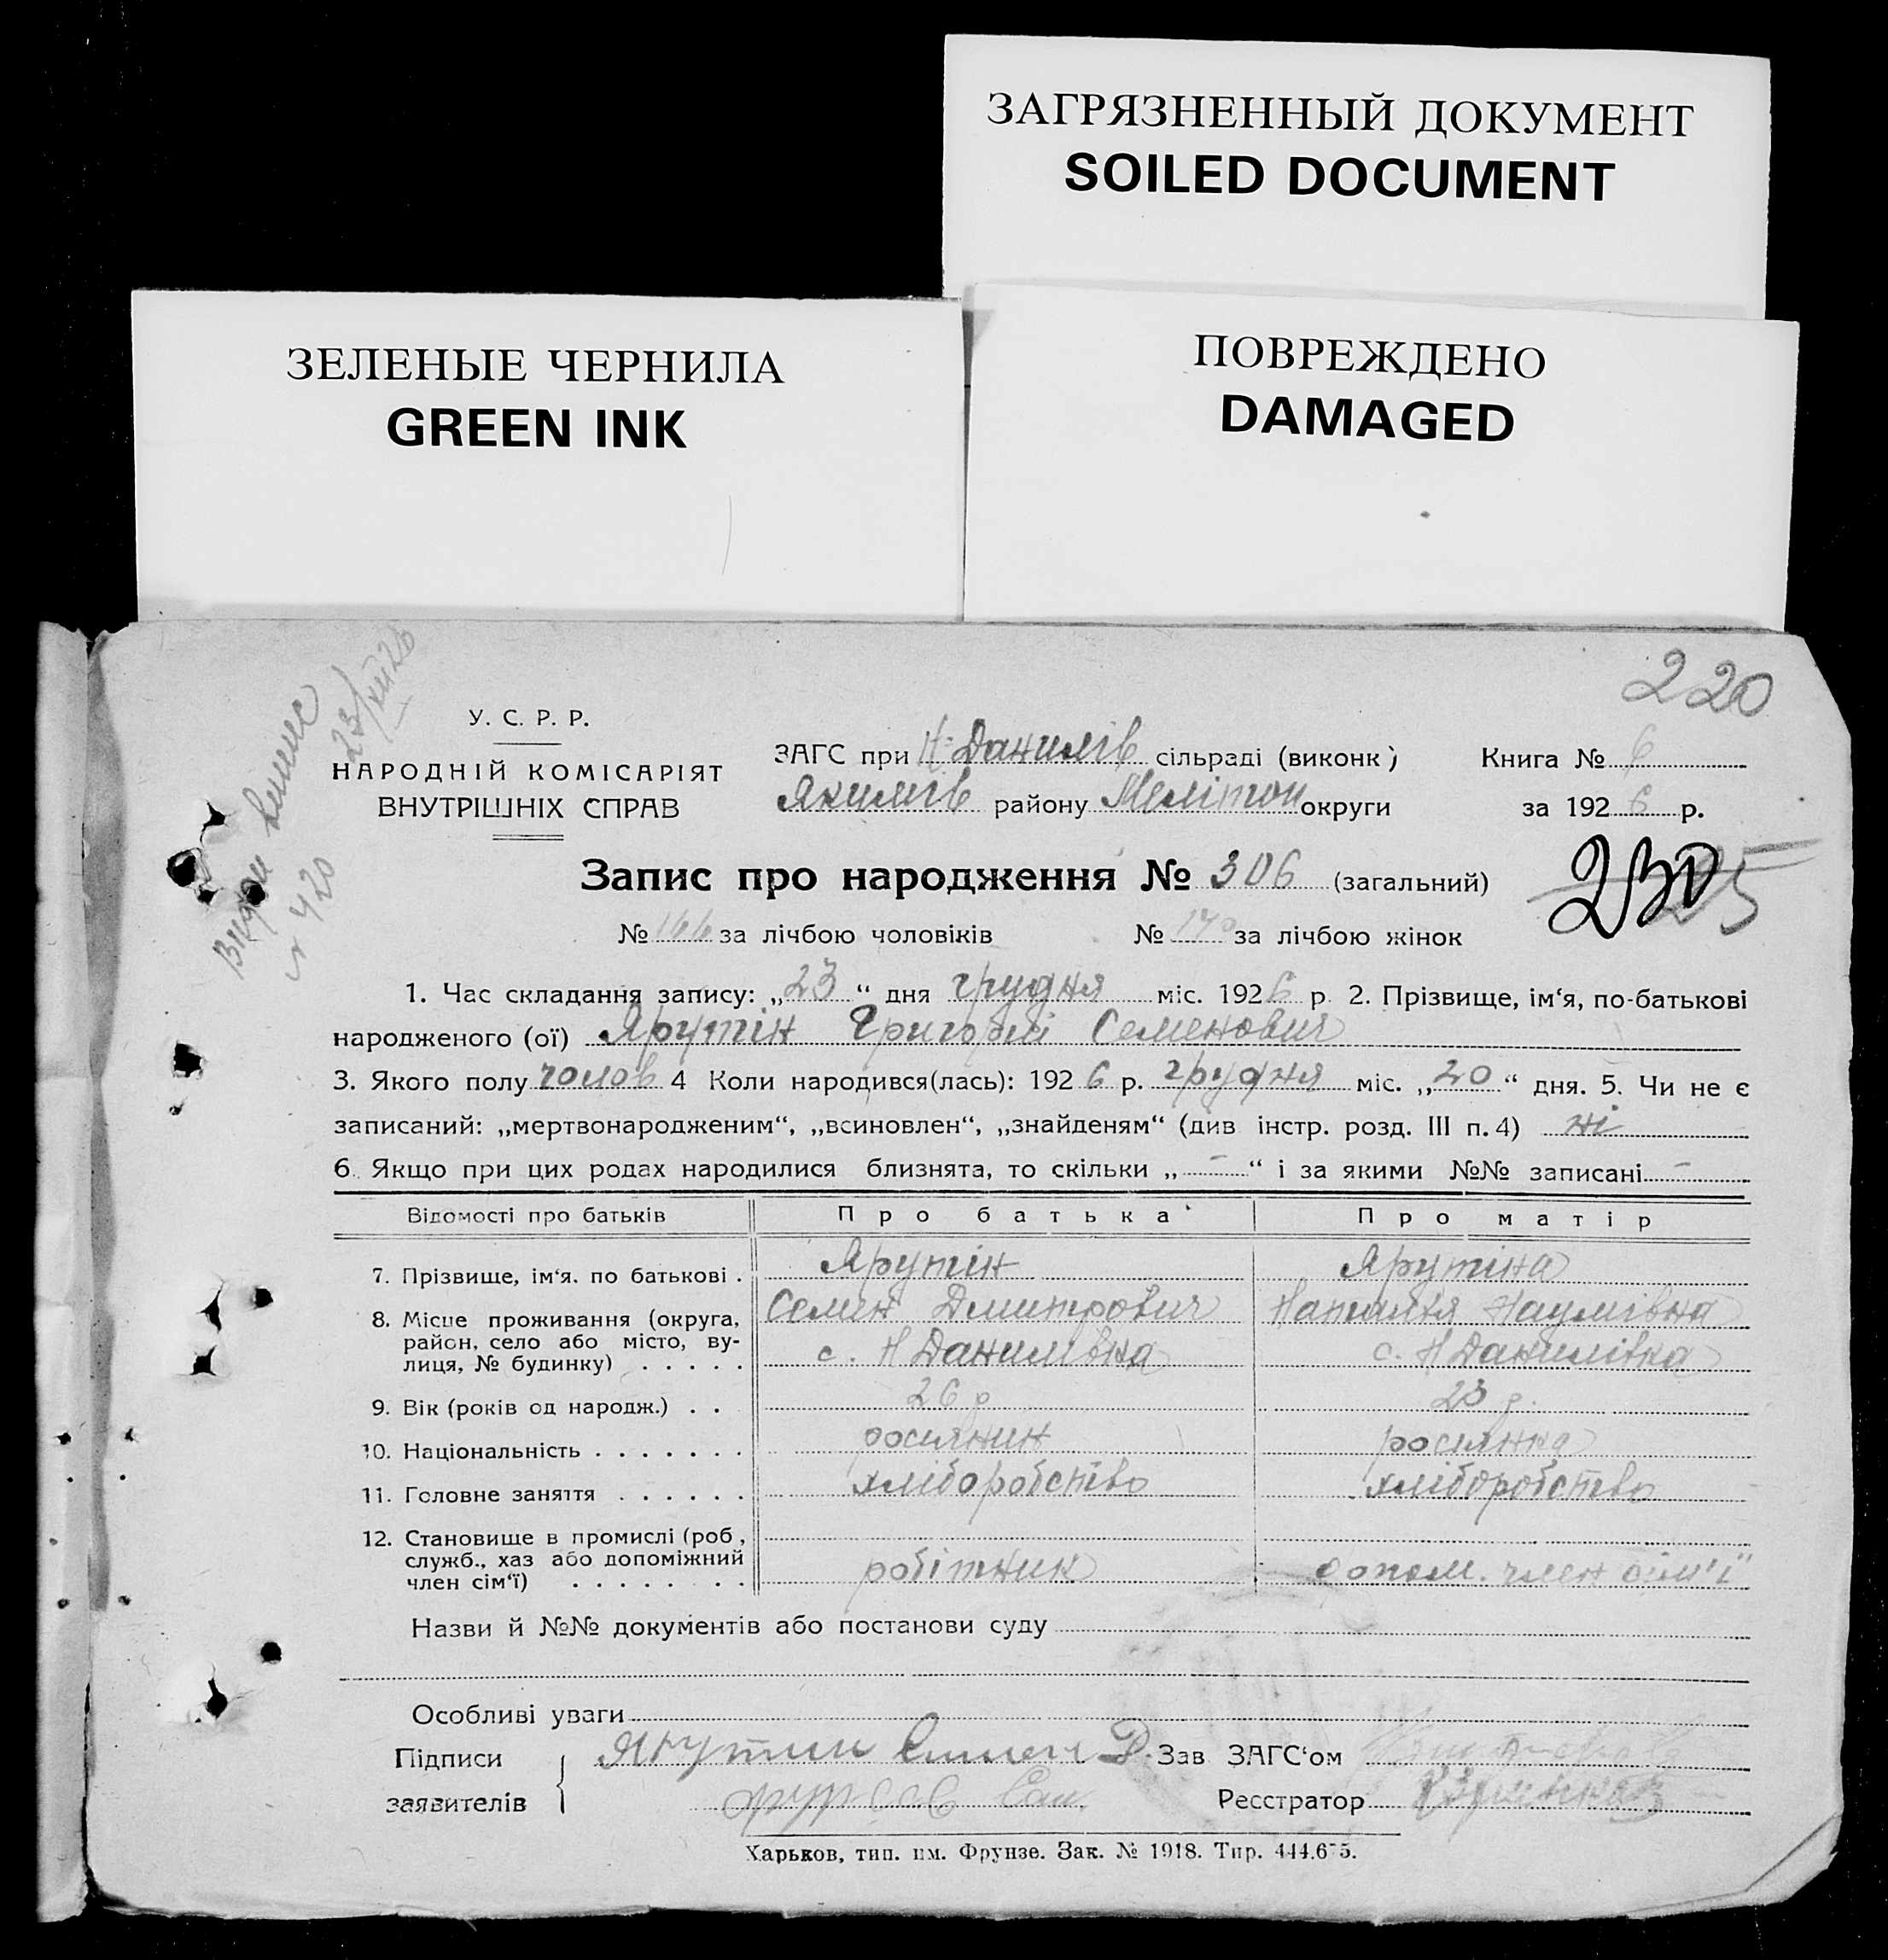 ЗАГРЯЗНЕННЫЙ ДОКУМЕНТ
SOILED DOCUMENT
ЗЕЛЕНЫЕ ЧЕРНИЛА
GREEN INK
ПОВРЕЖДЕНО
DAMAGED
220
Видан випис
23/XII 26
№ 420
У. С. Р. Р.
НАРОДНІЙ КОМІСАРІЯТ
ВНУТРІШНІХ СПРАВ
ЗАГС при Н-Данилів сільраді (виконк) Книга № 6
Якимів району Мелітоп округи за 1926 р.
Запис про народження № 306 (загальний)
230
№ 166 за лічбою чоловіків № 140 за лічбою жінок
1. Час складання запису: „23“ дня грудня міс. 1926 р 2. Прізвище, ім‘я, по-батькові
народженого (ої) Ярутін Григорій Семенович
3. Якого полу чолов 4 Коли народився(лась): 1926 р. грудня міс. „20“ дня. 5. Чи не є
записаний: „мертвонародженим“, „всиновлен“, „знайденям“ (див інстр. розд. III п. 4) ні
6. Якщо при цих родах народилися близнята, то скільки „-“ і за якими №№ записані -
Відомості про батьків Про батька Про матір
7. Прізвище, ім‘я. по батькові . Ярутін Ярутіна
Семен Дмитрович Наталія Наумівна
8. Місце проживання (округа,
район, село або місто, ву-
лиця, № будинку) . . . . . с. Н Данилівка с. Н Данилівка
9. Вік (років од народж.) . . 26 р 23 р.
10. Національність . . . . . . . росіянин росіянка
11. Головне заняття . . . . . . хліборобство хліборобство
12. Становище в промислі (роб,
служб., хаз або допоміжний
член сім‘ї) . . . . . . . робітник допом. член сім'ї
Назви й №№ документів або постанови суду
Особливі уваги
Підписи Ярутин Симен Д. Зав ЗАГС‘ом
заявителів Ресстратор
Харьков, тип. им. Фрунзе. Зак. № 1918. Тир. 444.675.